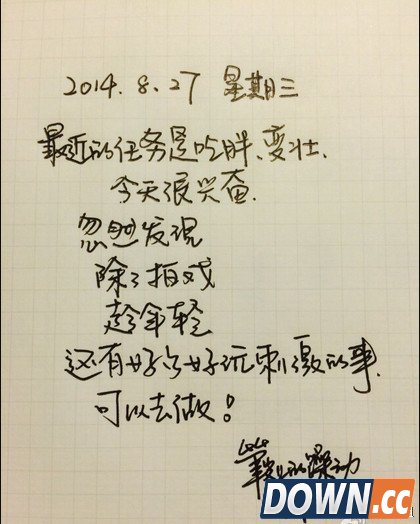 2014.8.27 星期三
最近的任务是吃胖、变壮.
今天很兴奋.
忽然发现
除了拍戏
趁年轻
还有好多好玩刺激的事.
可以去做!
的躁动
DOWN.cc